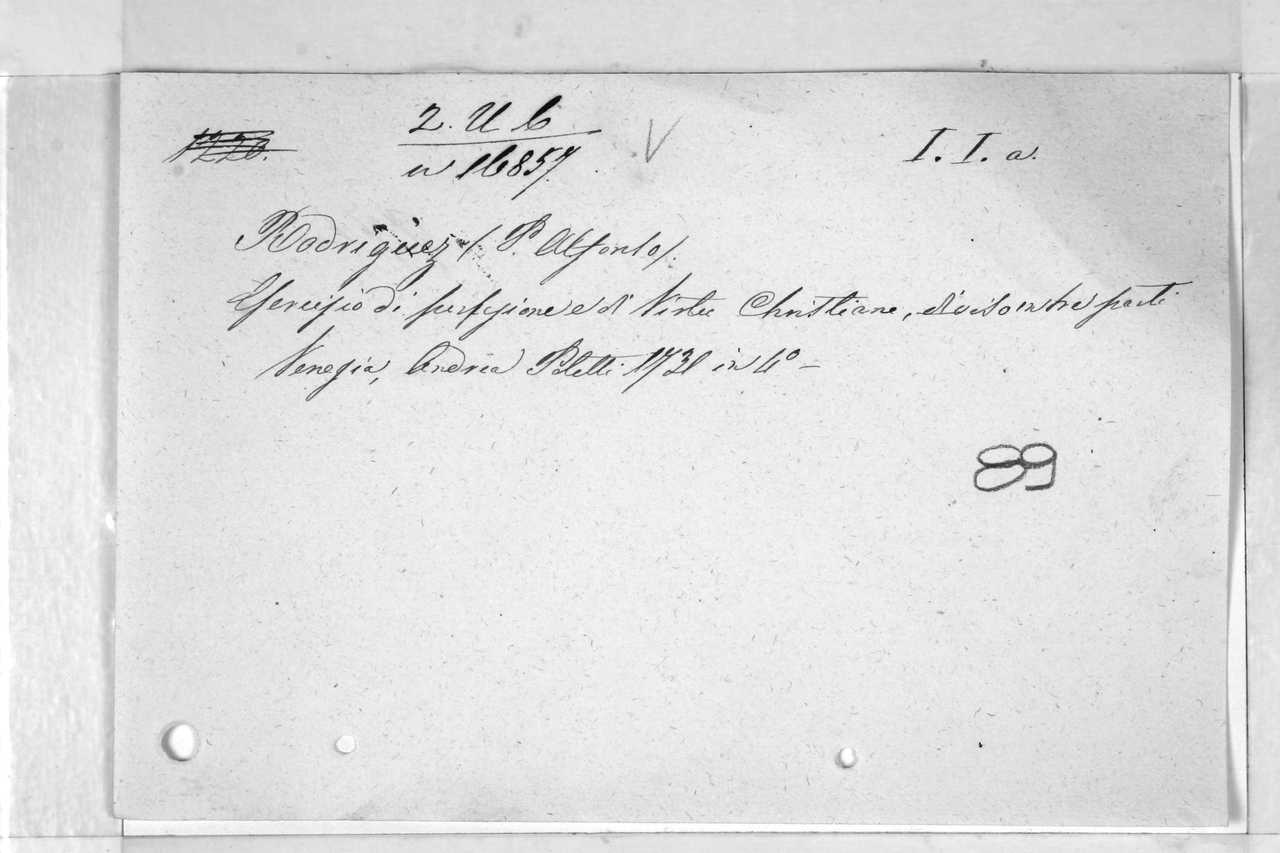 2. U b
I. I. a.
n 16857.
Rodriguez (P. Alfonso).
Esercizio di perfezione e di Virtu Christiane, diviso in tre parti
Venezia, Andrea Poletti 1731 in 4° –
89